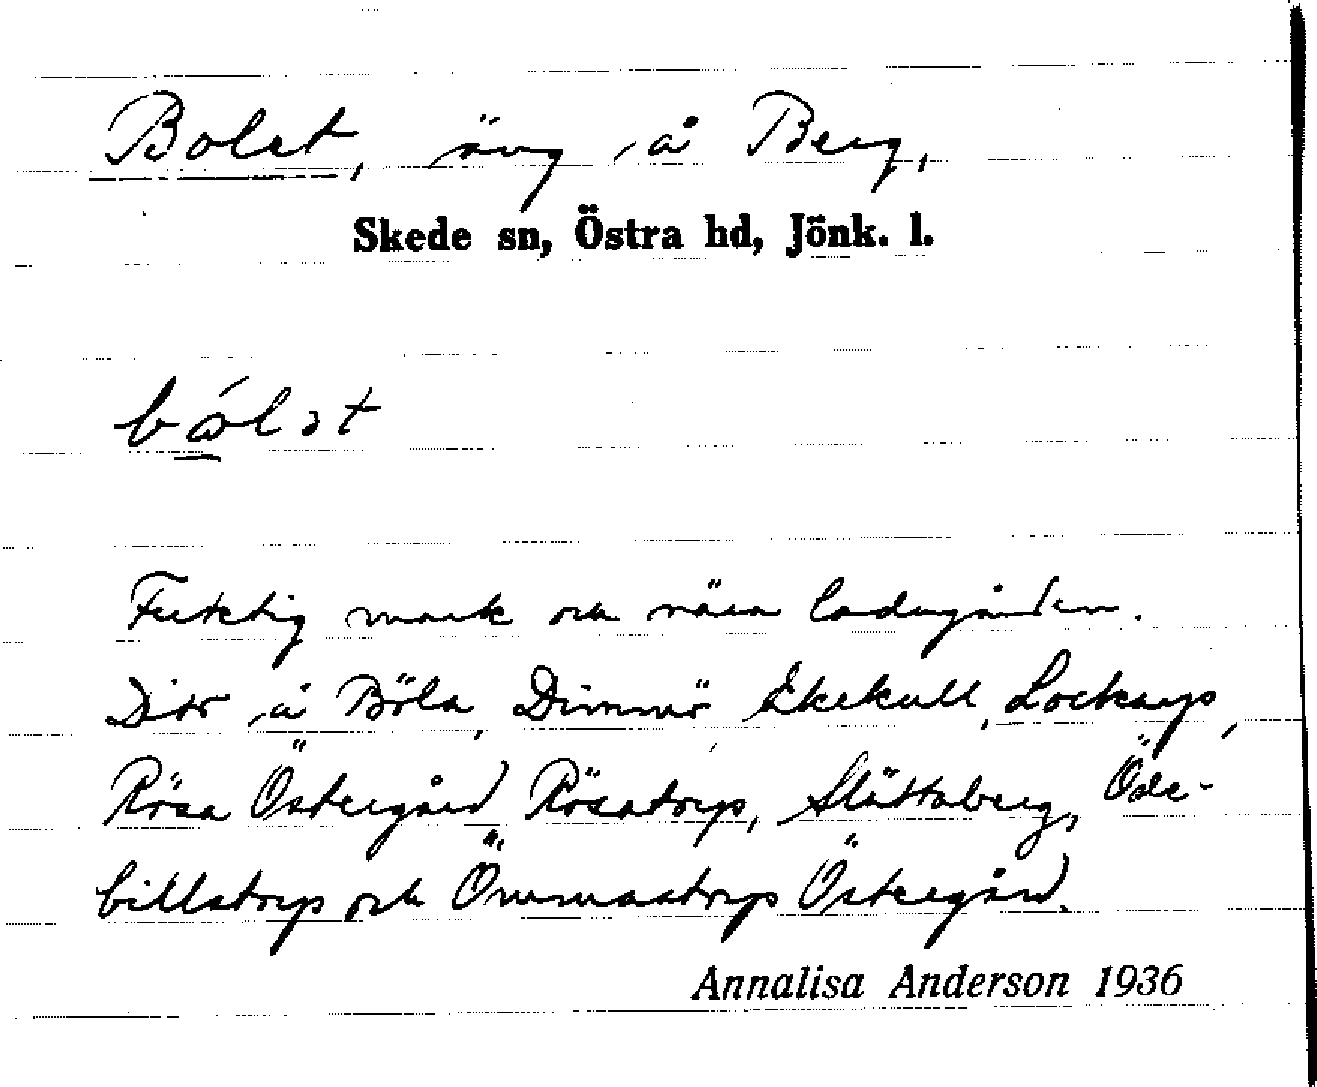 Bolet, äng å Berg,
Skede sn, Östra hd, Jönk. l.
bålət
Fuktig mark och nära ladugården.
Dito å Böla, Dimmö, Ekekull, Lockarp,
Rösa Östergård, Rösatorp, Slättaberg, Öde-
billstorp och Ömmastorp Östergård.
Annalisa Anderson 1936